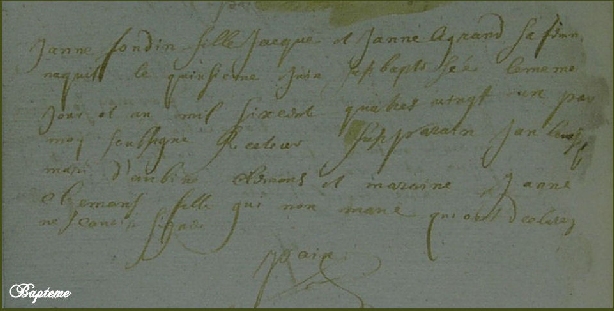 Janne fondin fille Jacque et Janne Agrand sa fam
naquit le quinsieme Juin baptiséé le meme
Jour et an mil sixcent quatres vingt un par
moy soussigné Recteur parain Jan
mari d'aubine clemans et maraine Janne
clemans fille qui non marie qui ont declarez
ne scavoir signer
Bapteme